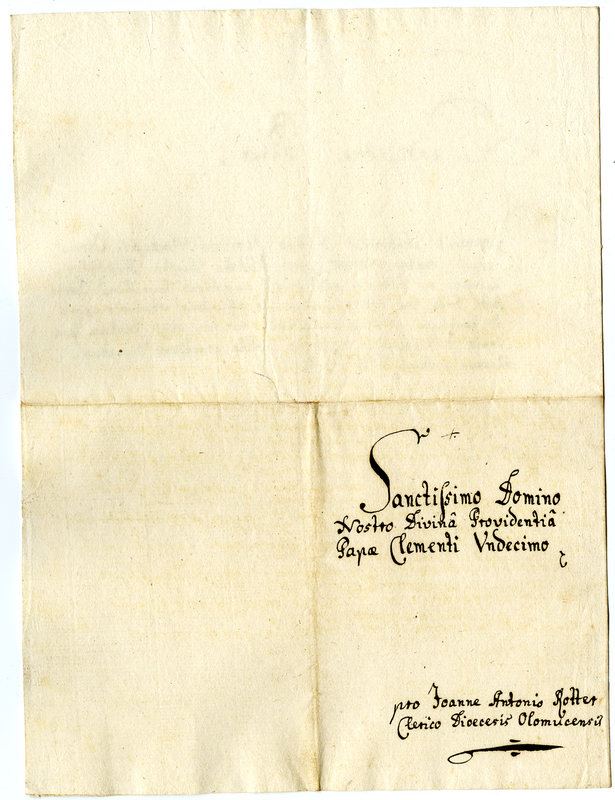 Sanctissimo Domino
Nostro Divinâ Providentiâ
Papæ Clementi Undecimo
pro Joanne Antonio Rotter
Clerico Dioecesis Olomucensis